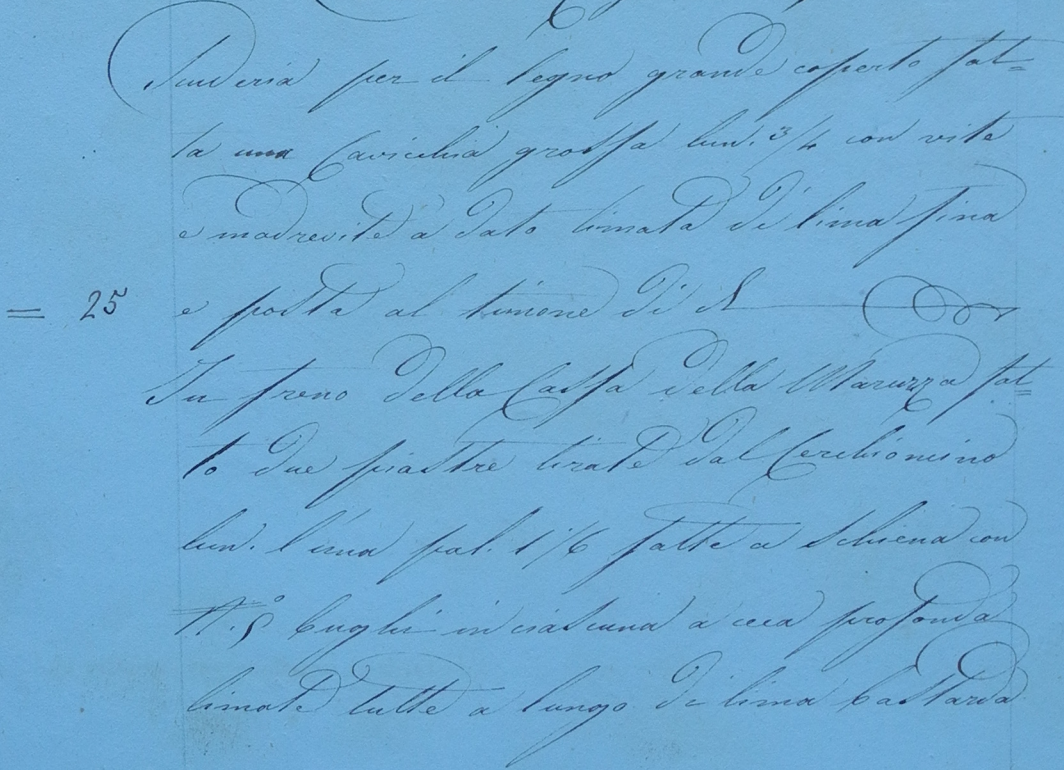 Scuderia per il legno grande coperto fat=
ta una Cavicchia grossa lun. 3/4 con vite
e madrevite a dato limata di lima fina
= 25 e posta al timone di d.
Su freno della Cassa della Maruzza fat=
to due piastre tirate dal Cerchioncino
lun. l'una pal. 1 1/6 fatte a schiena con
N.º 5 bughi in ciascuna a ceca profonda
limate tutte a lungo di lima bastarda